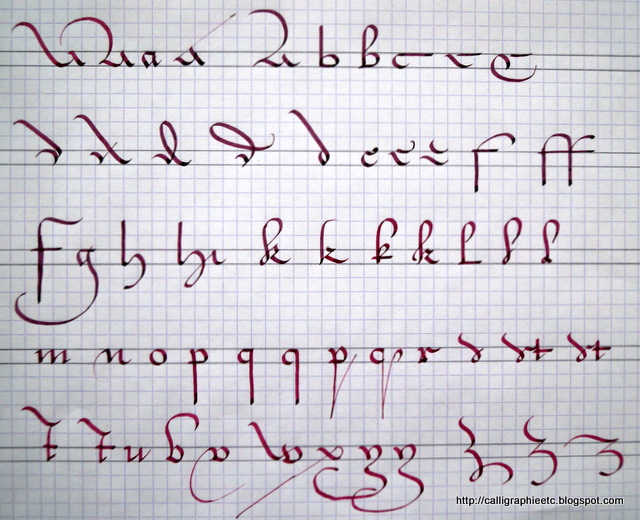 a a a a b b c c c
d d d d d e e e f ff
f g h h k k k k l l l
m n o p q q p q r s st st
t t u v v w x y y z z z
http://calligraphieetc.blogspot.com